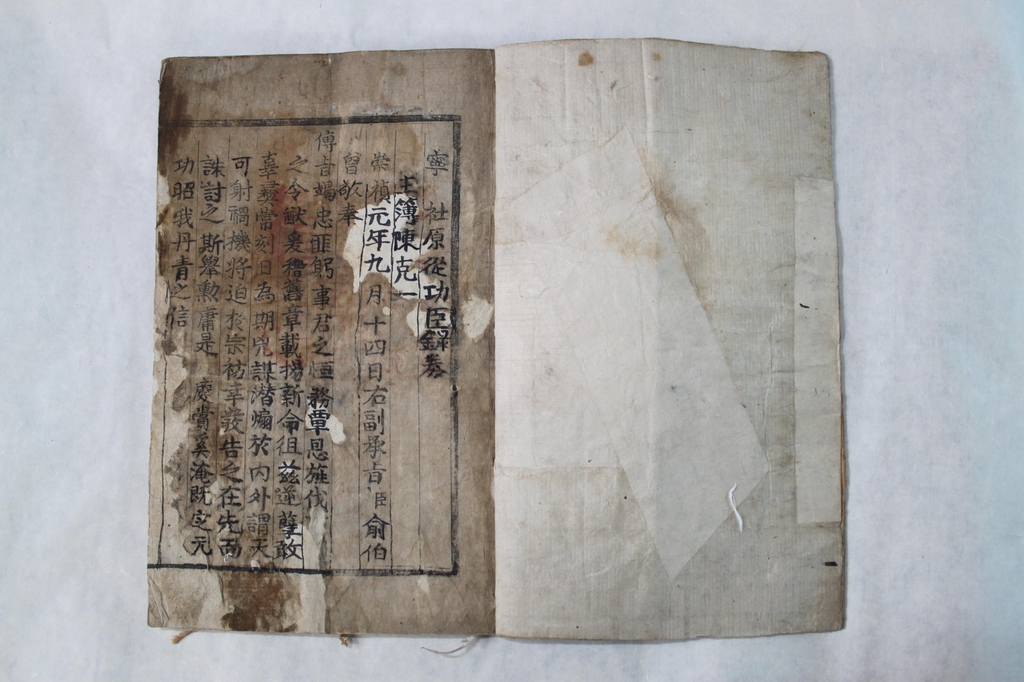 寧 社原從功臣錄券
主簿陳克一
崇禎元年九月十四日右副承旨臣俞伯
曾敬奉
傳旨竭忠匪躬事君之恒務覃恩旌伐
之令猷爰稽舊章載揚新命徂茲逆孽敢
辜羲當刻日為期兇謀潛煽於內外謂天
可射禍機將迫於宗祊幸發告之在先而
誅討之斯舉勳庸是 慶賞奚淹既定元
功昭我丹青之信